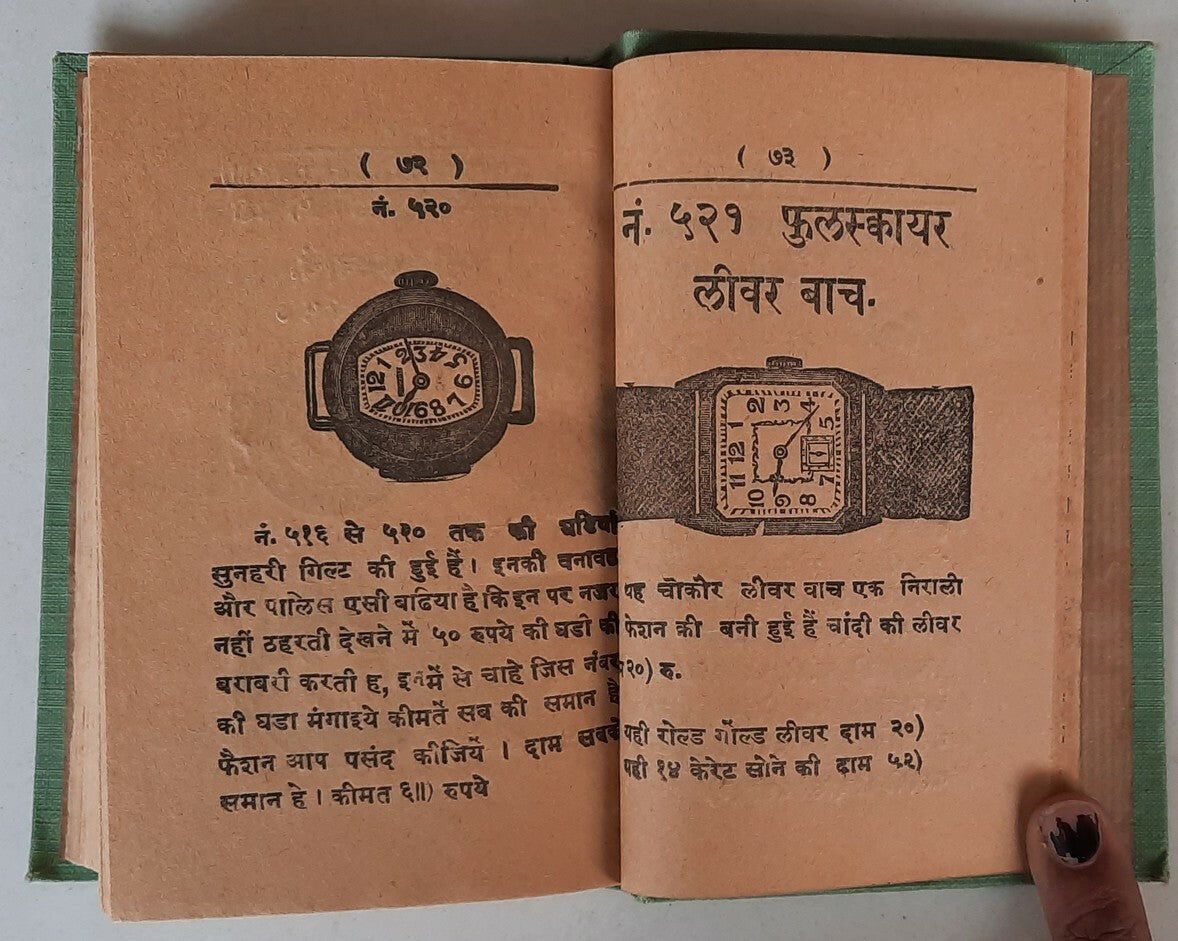 ( ७२ )
नं. ५२०
2 3 4 5
1
12 6
11 7
8
नं. ५१६ से ५२० तक की घडियां
सुनहरी गिल्ट की हुई हैं। इनकी बनावट
और पालिस एसी बढिया है कि इन पर नजर
नहीं ठहरती देखने में ५० रुपये की घडो की
बराबरी करती ह, इनमें से चाहे जिस नंबर
की घडा मंगाइये कीमतें सब की समान है
फैशन आप पसंद कीजियें । दाम सबके
समान हे । कीमत ६॥) रुपये
( ७३ )
नं. ५२१ फुलस्कायर
लीवर बाच.
2 3 4
1 5
12
11 7
10 9 8
यह चोकोर लीवर वाच एक निराली
फेशन की बनी हुई हैं चांदी की लीवर
२०) रु.
यही रोल्ड गोंल्ड लीवर दाम २०)
यही १४ केरेट सोने की दाम ५२)